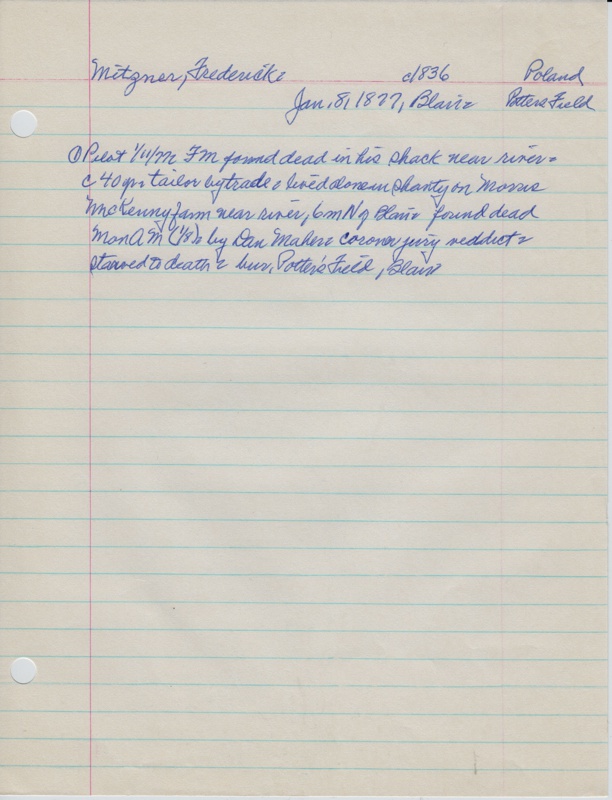 Mitzner, Frederick c1836 Poland
Jan. 8, 1877, Blair Potters Field
① Pilot 1/11/77 FM found dead in his shack near river
c 40 yrs tailor by trade & lived alone in shanty on Morris
McKenny farm near river, 6 m N of Blair found dead
Mon A M (1/8) by Dan Maher coroner jury verdict
starved to death & bur. Potter's Field, Blair